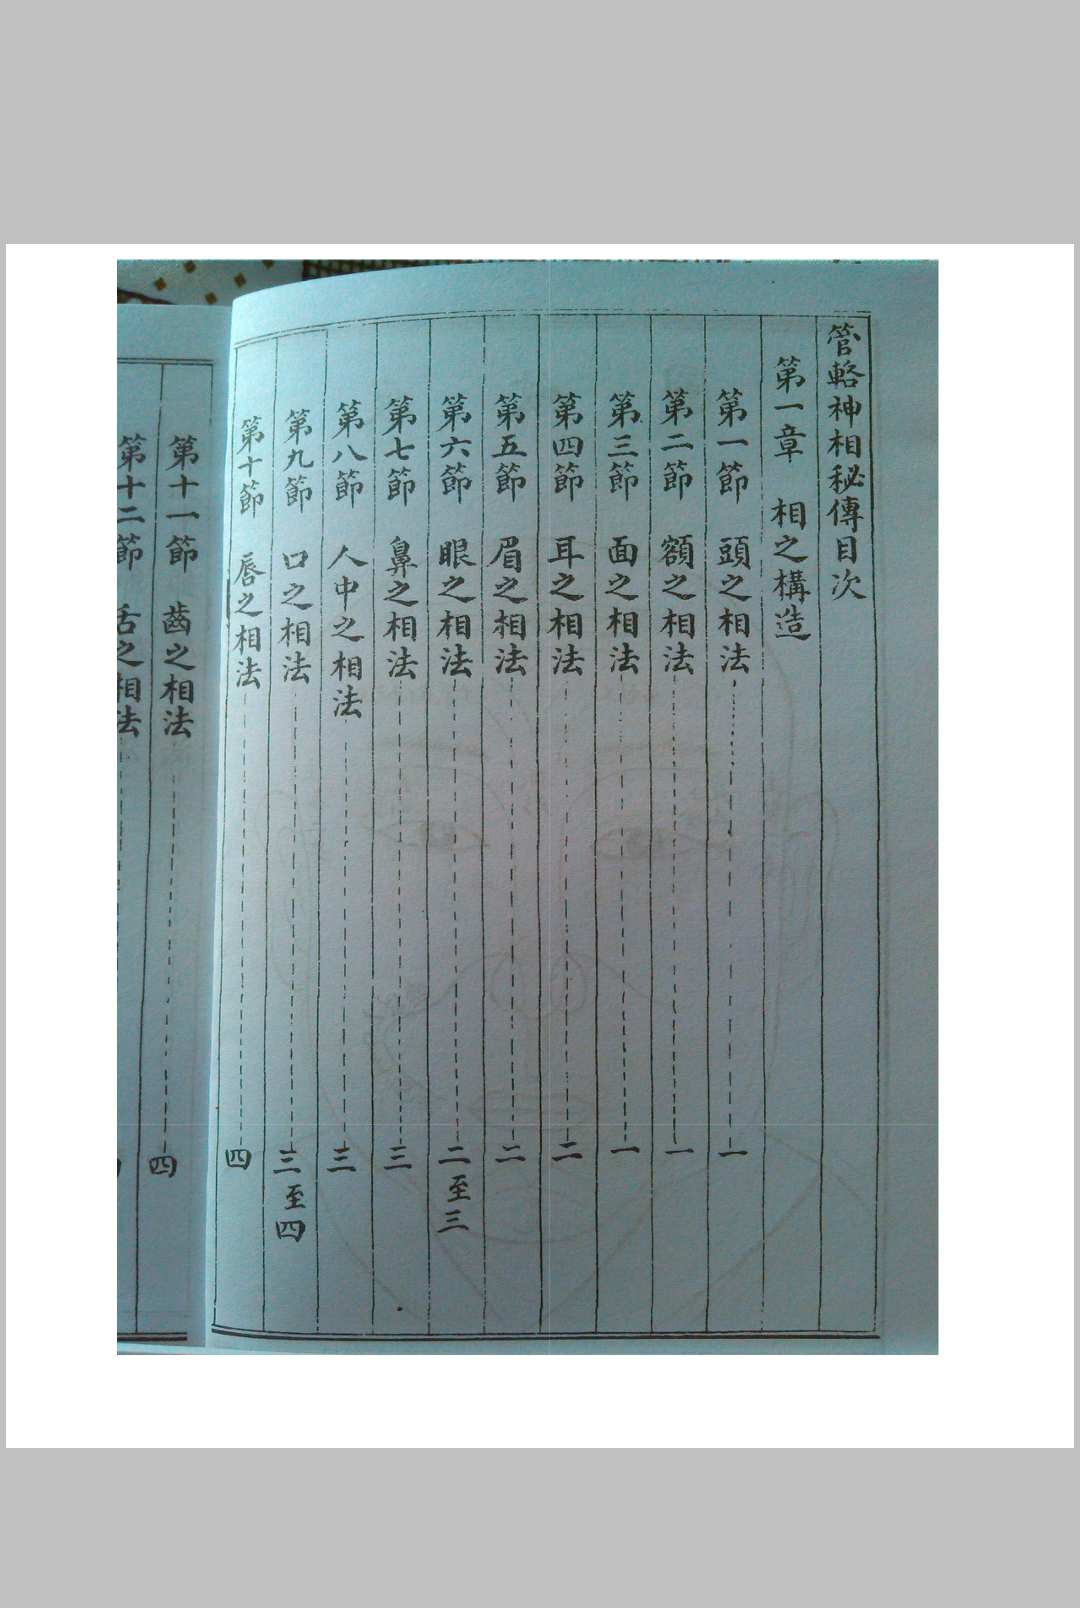 管輅神相秘傳目次
第一章 相之構造
第一節 頭之相法 一
第二節 額之相法 一
第三節 面之相法 一
第四節 耳之相法 二
第五節 眉之相法 二
第六節 眼之相法 二至三
第七節 鼻之相法 三
第八節 人中之相法 三
第九節 口之相法 三至四
第十節 唇之相法 四
第十一節 齒之相法 四
第十二節 舌之相法